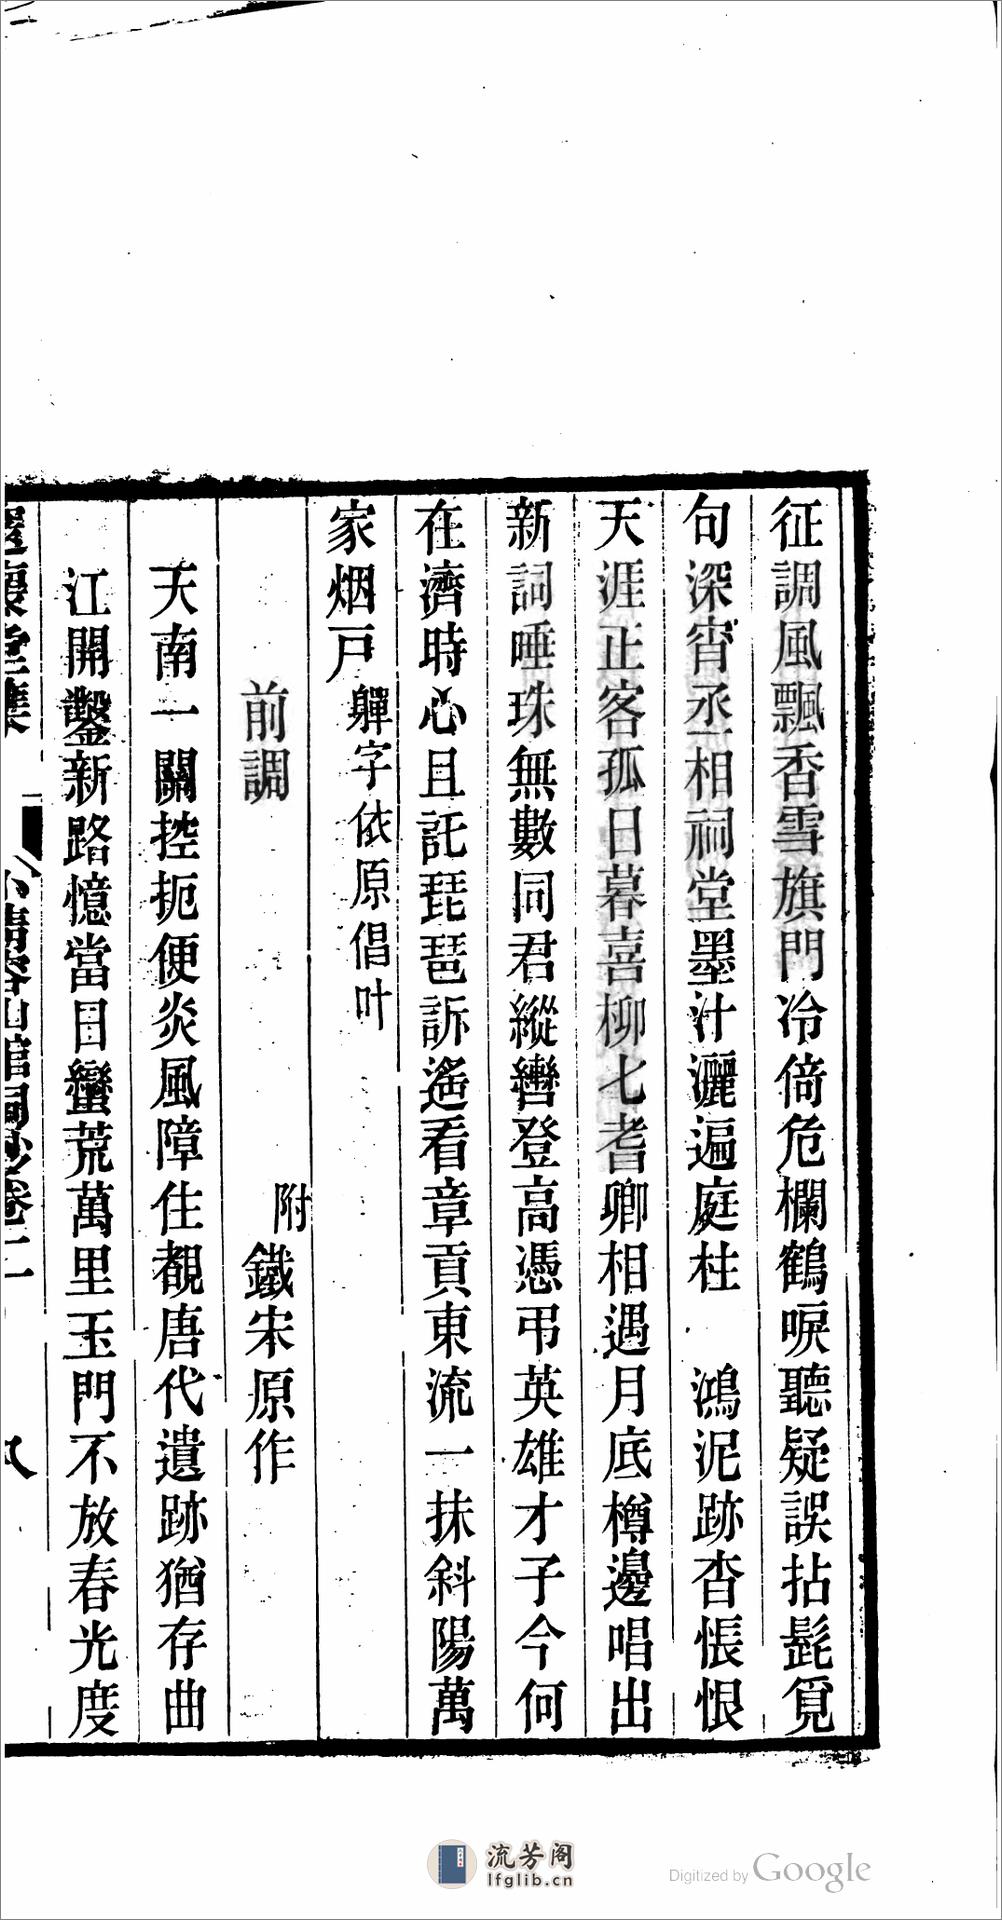 征調風飄香雪旗門冷倚危欄鶴唳聽疑誤拈髭覓
句深宵丞相祠堂墨汁灑遍庭柱　鴻泥跡杳悵恨
天涯止客孤日暮喜柳七耆卿相遇月底樽邊唱出
新詞唾珠無數同君縱轡登高憑弔英雄才子今何
在濟時心且託琵琶訴遙看章貢東流一抹斜陽萬
家烟戸軃字依原倡叶
前調　附鐵宋原作
天南一關控扼便炎風障住覩唐代遺跡猶存曲
江開鑿新路憶當日蠻荒萬里玉門不放春光度
還讀堂集　小清容山館詞鈔卷二　八
流芳阁
lfglib.cn
Digitized by Google